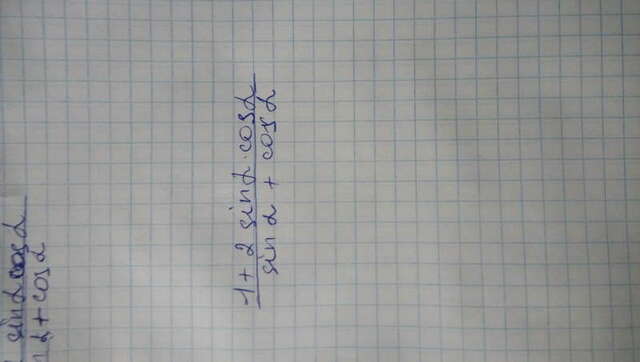 sinα cosα
α + cosα
1 + 2 sinα · cosα
sin α + cosα